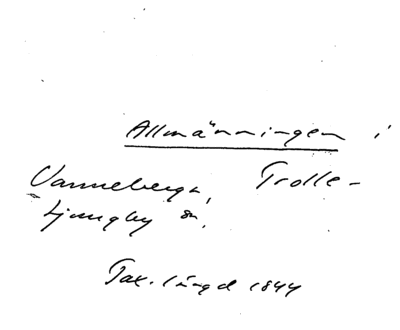 Allmänningen i
Vanneberga, Trolle-
Ljungby sn.
Tax. längd 1844